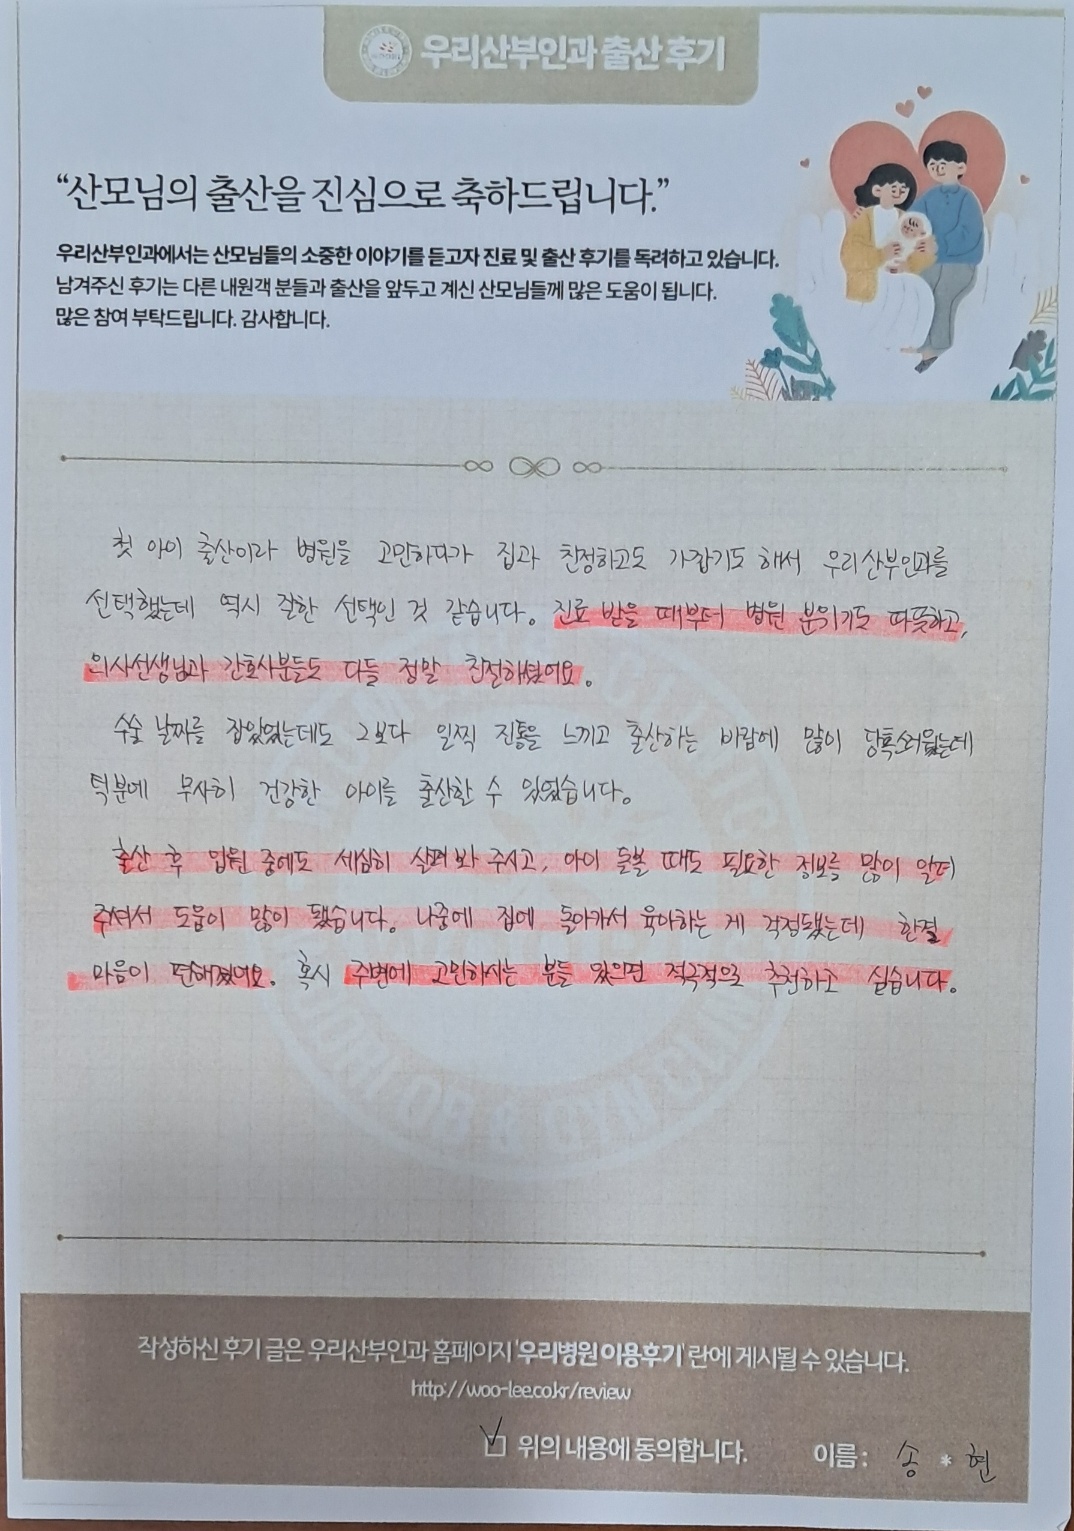 우리산부인과 출산 후기
“산모님의 출산을 진심으로 축하드립니다.”
우리산부인과에서는 산모님들의 소중한 이야기를 듣고자 진료 및 출산 후기를 독려하고 있습니다.
남겨주신 후기는 다른 내원객 분들과 출산을 앞두고 계신 산모님들께 많은 도움이 됩니다.
많은 참여 부탁드립니다. 감사합니다.
첫 아이 출산이라 병원을 고민하다가 집과 친정하고도 가깝기도 해서 우리산부인과를
선택했는데 역시 잘한 선택인 것 같습니다. 진료 받을 때부터 병원 분위기도 따뜻하고,
의사선생님과 간호사분들도 다들 정말 친절하셨어요.
수술 날짜를 잡았었는데도 그보다 일찍 진통을 느끼고 출산하는 바람에 많이 당혹스러웠는데
덕분에 무사히 건강한 아이를 출산할 수 있었습니다.
출산 후 입원 중에도 세심히 살펴봐 주시고, 아이 돌볼 때도 필요한 정보를 많이 알려
주셔서 도움이 많이 됐습니다. 나중에 집에 돌아가서 육아하는 게 걱정됐는데 한결
마음이 편해졌어요. 혹시 주변에 고민하시는 분들 있으면 적극적으로 추천하고 싶습니다.
WOORI OB & GYN CLINIC
작성하신 후기 글은 우리산부인과 홈페이지 '우리병원 이용후기' 란에 게시될 수 있습니다.
http://woo-lee.co.kr/review
위의 내용에 동의합니다. 이름 : 송 * 현